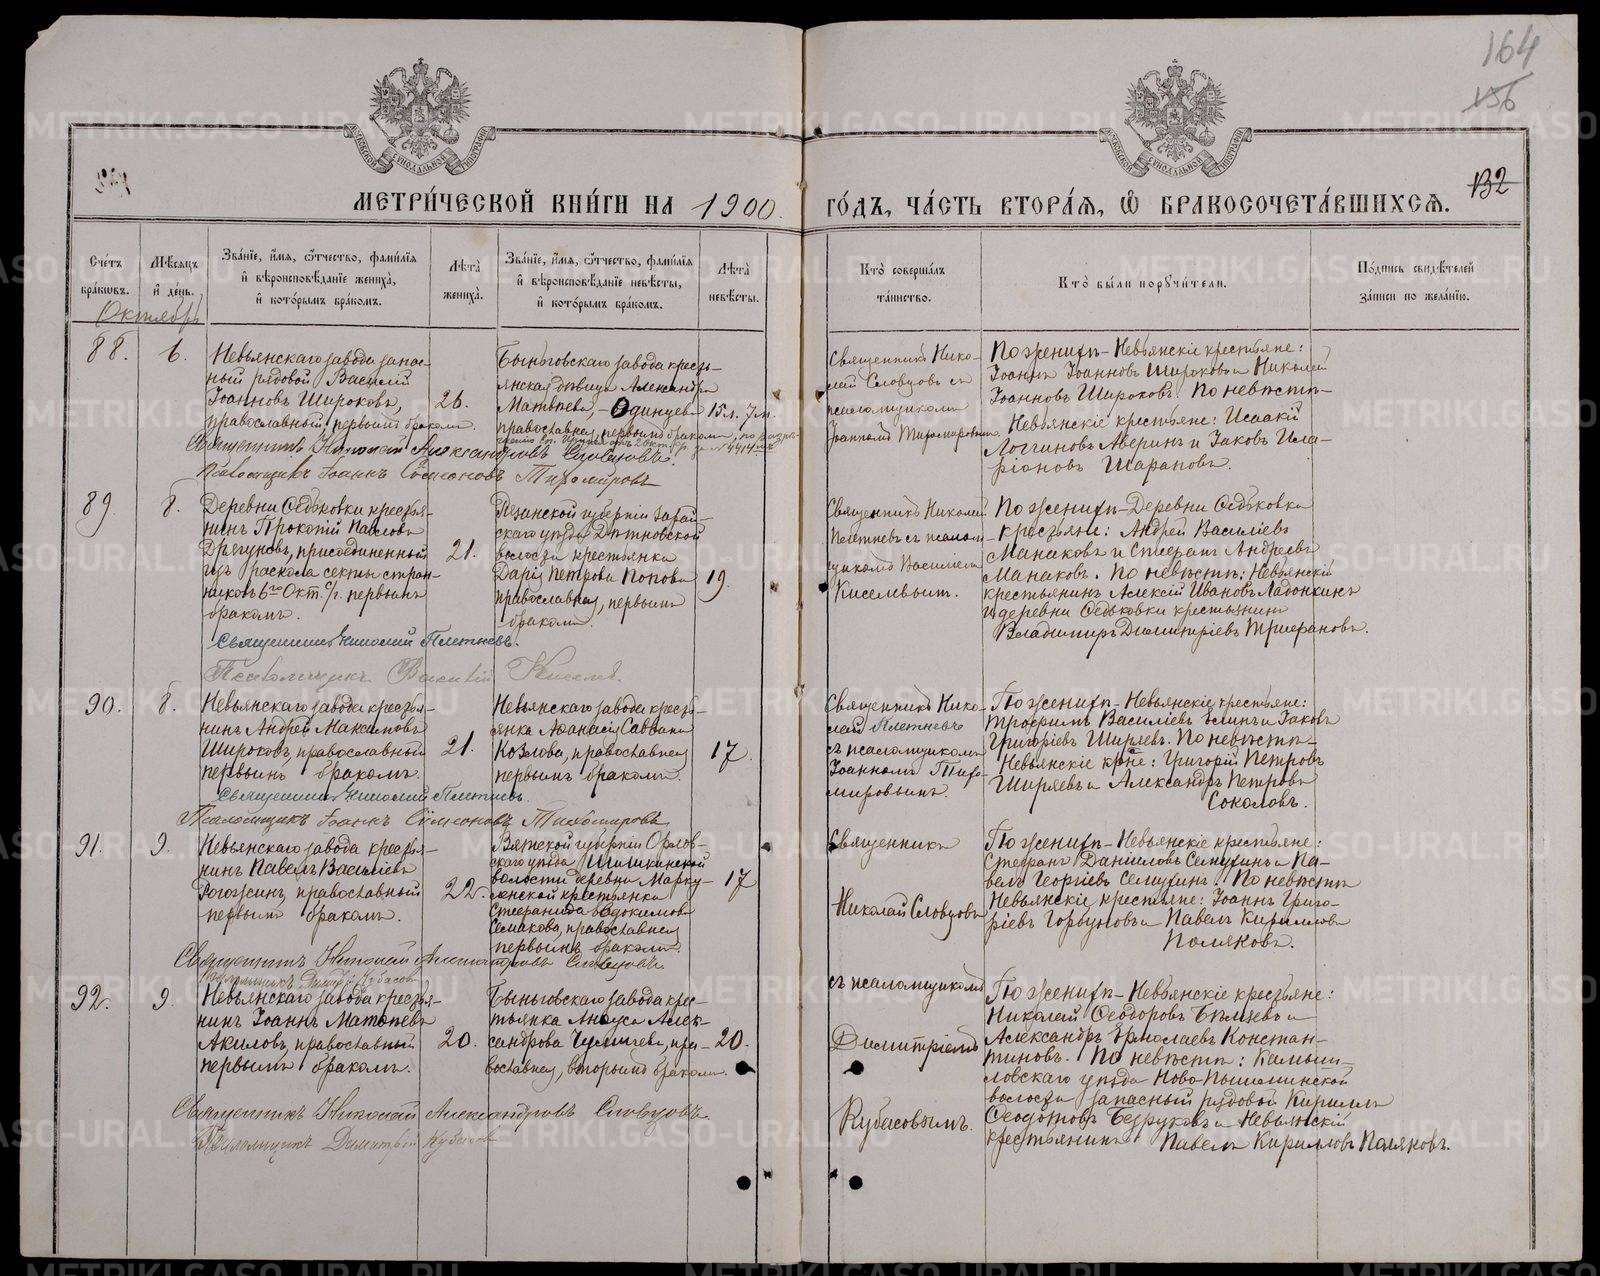 164
156
132
МЕТРИ́ЧЕСКОЙ КНИ́ГИ НА 1900
ГО́ДЪ, ЧА́СТЬ ВТОРА́Я, Ѽ БРАКОСОЧЕТА́ВШИХСЯ.
Сче́тъ бра́кѡвъ.
Мѣ́сяцъ и҆ де́нь.
Зва́нїе, и҆́мя, ѻ҆́тчество, фами́лїя и҆ вѣроисповѣ́данїе жениха̀, и҆ кото́рымъ бра́комъ.
Лѣта̀ жениха̀.
Зва́нїе, и҆́мя, ѻ҆́тчество, фами́лїя и҆ вѣроисповѣ́данїе невѣ́сты, и҆ кото́рымъ бра́комъ.
Лѣта̀ невѣ́сты.
Кто̀ соверша́лъ та́инство.
Кто̀ бы́ли порꙋчи́тели.
По́дпись свидѣ́телей за́писи по жела́нїю.
Октябрь
88.
6.
Невьянскаго завода запас-
ный рядовой Василий
Іоанновъ Широковъ,
православный, первымъ бракомъ.
26.
Быньговскаго завода кресть-
янская дѣвица Александра
Матвѣева Одинцева
православная, первымъ бракомъ, по разрѣ-
15 л. 7 м.
Священникъ Нико-
лай Словцовъ съ
псаломщикомъ
Іоанномъ Тихомировымъ
По женихѣ – Невьянскіе крестьяне:
Іоаннъ Іоанновъ Широковъ и Николай
Іоанновъ Широковъ. По невѣстѣ –
Невьянскіе крестьяне: Исаакій
Логгиновъ Аверинъ и Іаковъ Ила-
ріоновъ Шараповъ.
Священникъ Николай Александровъ Словцовъ.
Псаломщикъ Іоаннъ Симеоновъ Тихомировъ
89
6.
Деревни Ѳедьковки крестья-
нинъ Прокопій Павловъ
Дрягуновъ, присоединенный
изъ раскола секты стран-
никовъ 6го Окт. с/г. первымъ
бракомъ.
21.
Рязанской губерніи Зарай-
скаго уѣзда Дѣтновской
волости крестьянка
Дарія Петрова Попова
православная, первымъ
бракомъ.
19.
Священникъ Николай
Плетневъ съ псалом-
щикомъ Василіемъ
Киселевымъ.
По женихѣ – Деревни Ѳедьковки
крестьяне: Андрей Василіевъ
Манаковъ и Стефанъ Андреевъ
Манаковъ. По невѣстѣ: Невьянскій
крестьянинъ Алексій Ивановъ Ладонкинъ
и деревни Ѳедьковки крестьянинъ
Владимиръ Димитріевъ Трифановъ.
Священникъ Николай Плетневъ.
Псаломщикъ Василій Киселевъ.
90.
6.
Невьянскаго завода крестья-
нинъ Андрей Максимовъ
Широковъ, православный
первымъ бракомъ.
21.
Невьянскаго завода кресть-
янка Аѳанасія Саввина
Козлова, православная
первымъ бракомъ.
17
Священникъ Нико-
лай Плетневъ
съ псаломщикомъ
Іоанномъ Тихо-
мировымъ.
По женихѣ – Невьянскіе крестьяне:
Трофимъ Василіевъ Елинъ и Іаковъ
Григоріевъ Ширяевъ. По невѣстѣ –
Невьянскіе крне: Григорій Петровъ
Ширяевъ и Александръ Петровъ
Соколовъ.
Священникъ Николай Плетневъ.
Псаломщикъ Іоаннъ Симеоновъ Тихомировъ
91.
9.
Невьянскаго завода крестья-
нинъ Павелъ Василіевъ
Рогожинъ, православный
первымъ бракомъ.
22.
Вятской губерніи Орлов-
скаго уѣзда Шишкинской
волости деревни Марку-
Стефанида Евдокимова
Семакова, православная
первымъ бракомъ.
17
Священникъ
Николай Словцовъ
По женихѣ – Невьянскіе крестьяне:
Стефанъ Даніиловъ Семухинъ и Па-
велъ Георгіевъ Семухинъ. По невѣстѣ
Невьянскіе крестьяне: Іоаннъ Григо-
ріевъ Горбуновъ и Павелъ Кирилловъ
Поляковъ.
Священникъ Николай Александровъ Словцовъ.
Псаломщикъ Димитрій Кубасовъ
92.
9.
Невьянскаго завода крестья-
нинъ Іоаннъ Матвѣевъ
Акиловъ, православный
первымъ бракомъ.
20.
Быньговскаго завода крес-
тьянка Анѳуса Алек-
сандрова Чумичева, пра-
вославная, вторымъ бракомъ.
20.
съ псаломщикомъ
Димитріемъ
Кубасовымъ.
По женихѣ – Невьянскіе крестьяне:
Николай Ѳеодоровъ Бѣляевъ и
Александръ Ермолаевъ Констан-
тиновъ. По невѣстѣ: Камыш-
ловскаго уѣзда Ново-Пышминской
волости запасный рядовой Кириллъ
Ѳеодотовъ Безруковъ и Невьянскій
крестьянинъ Павелъ Кирилловъ Поляковъ.
Священникъ Николай Александровъ Словцовъ.
Псаломщикъ Димитрій Кубасовъ